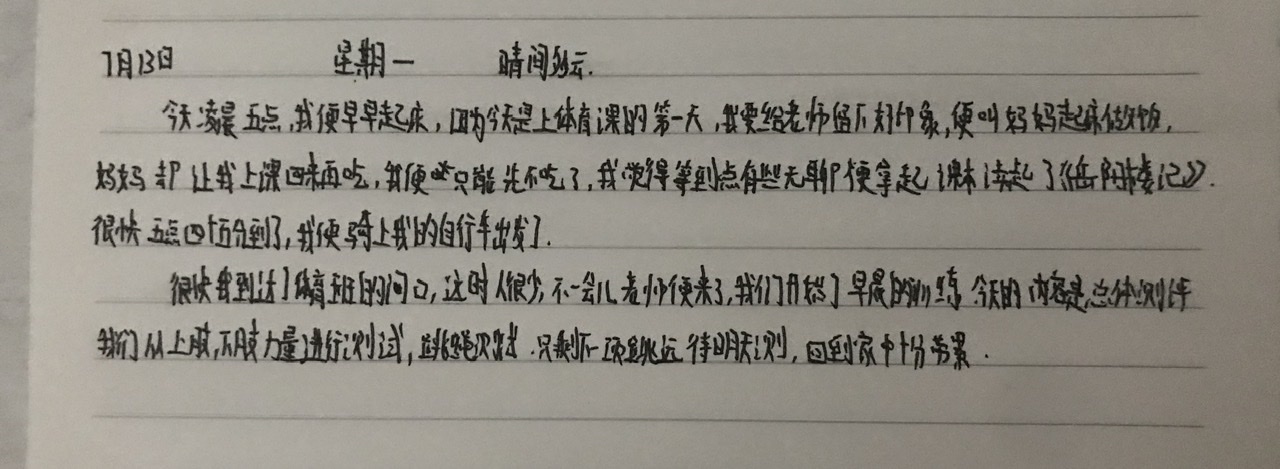 7月13日 星期一 晴间多云.
今天凌晨五点,我便早早起床,因为今天是上体育课的第一天,我要给老师留下好印象,便叫妈妈起床做饭,
妈妈却让我上课回来再吃,我便只能先不吃了,我觉得等到点有些无聊便拿起课本读起了《岳阳楼记》.
很快五点四十五分到了,我便骑上我的自行车出发了.
很快我到达了体育班的门口,这时人很少,不一会儿老师便来了,我们开始了早晨的训练 今天的内容是总体测评
我们从上肢,下肢力量进行测试,跳绳 只剩下一项跳远待明天测,回到家中十分劳累.